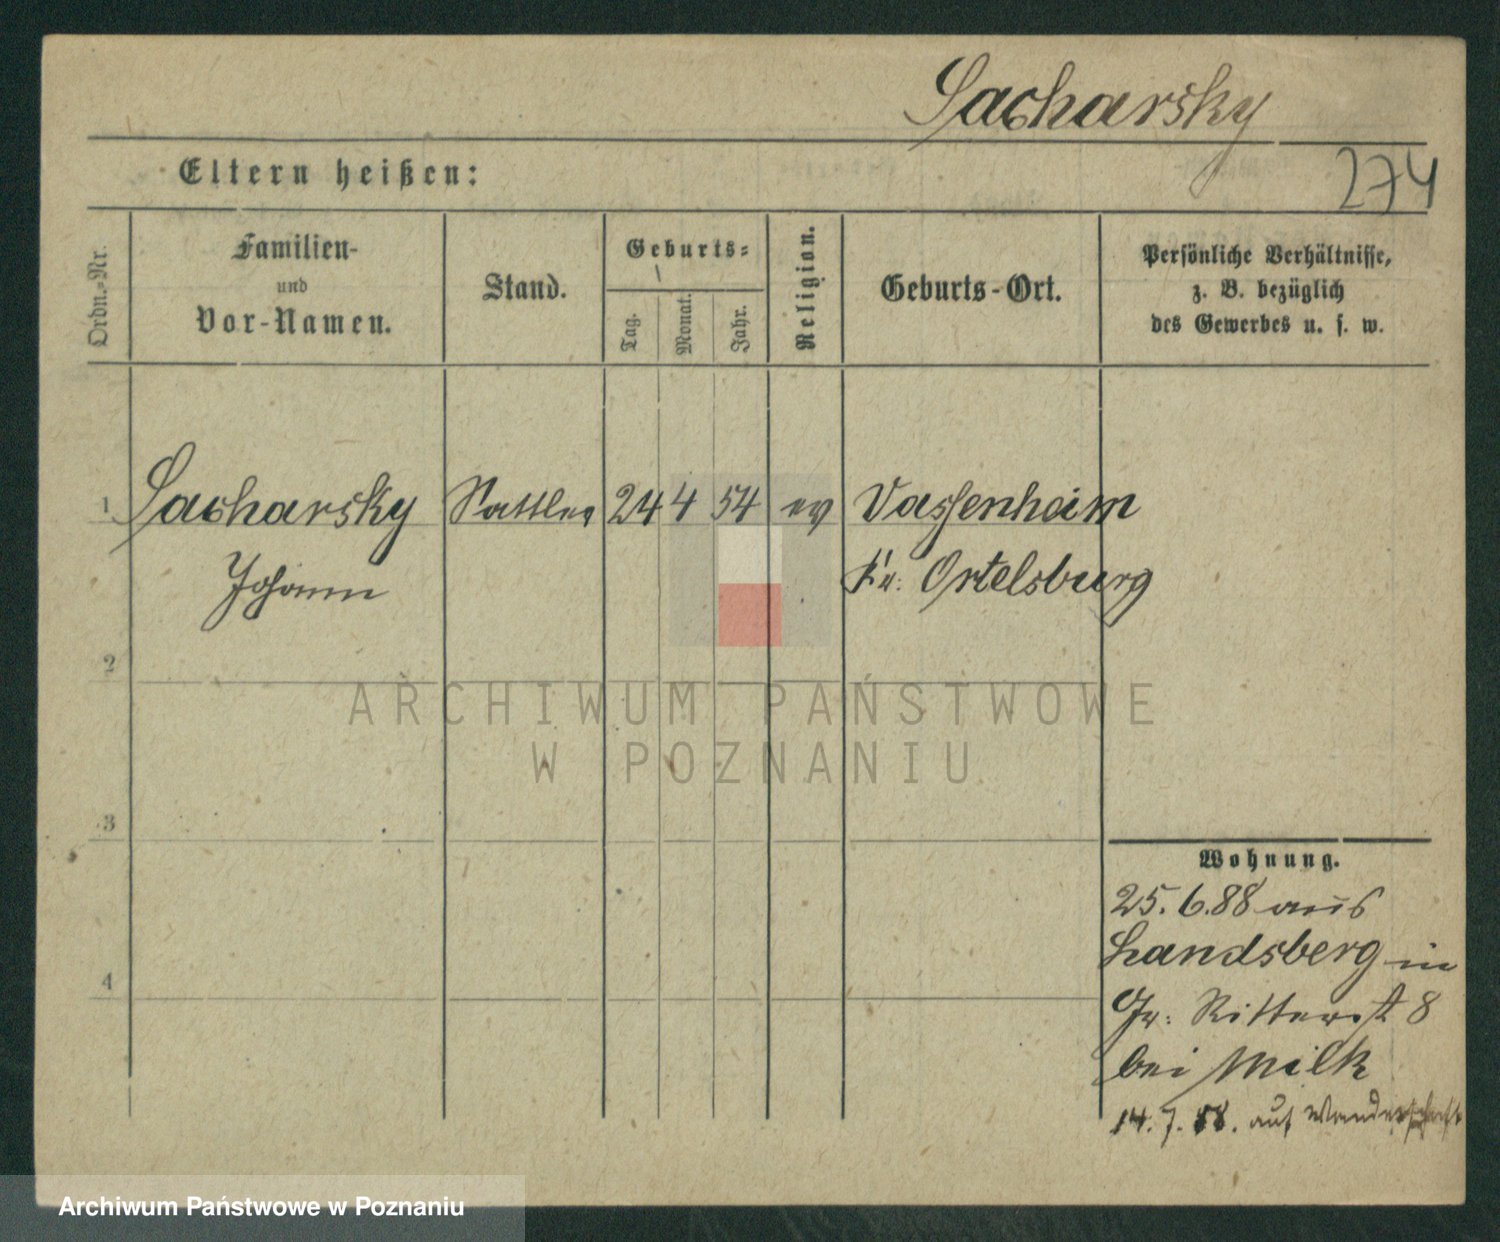 Sacharsky
274
Eltern heißen:
Ordn.-Nr.
Familien-
und
Vor-Namen.
Stand.
Geburts-
Tag.
Monat.
Jahr.
Religion.
Geburts-Ort.
Persönliche Verhältnisse,
z. B. bezüglich
des Gewerbes u. s. w.
1 Sacharsky Sattler 24 4 54 ev Passenheim
Johann Kr. Ortelsburg
2
ARCHIWUM PAŃSTWOWE
W POZNANIU
3
Wohnung.
25.6.88 aus
Landsberg in
4
Gr: Ritterst 8
bei Milk
14.7.88. auf Wanderschaft
Archiwum Państwowe w Poznaniu